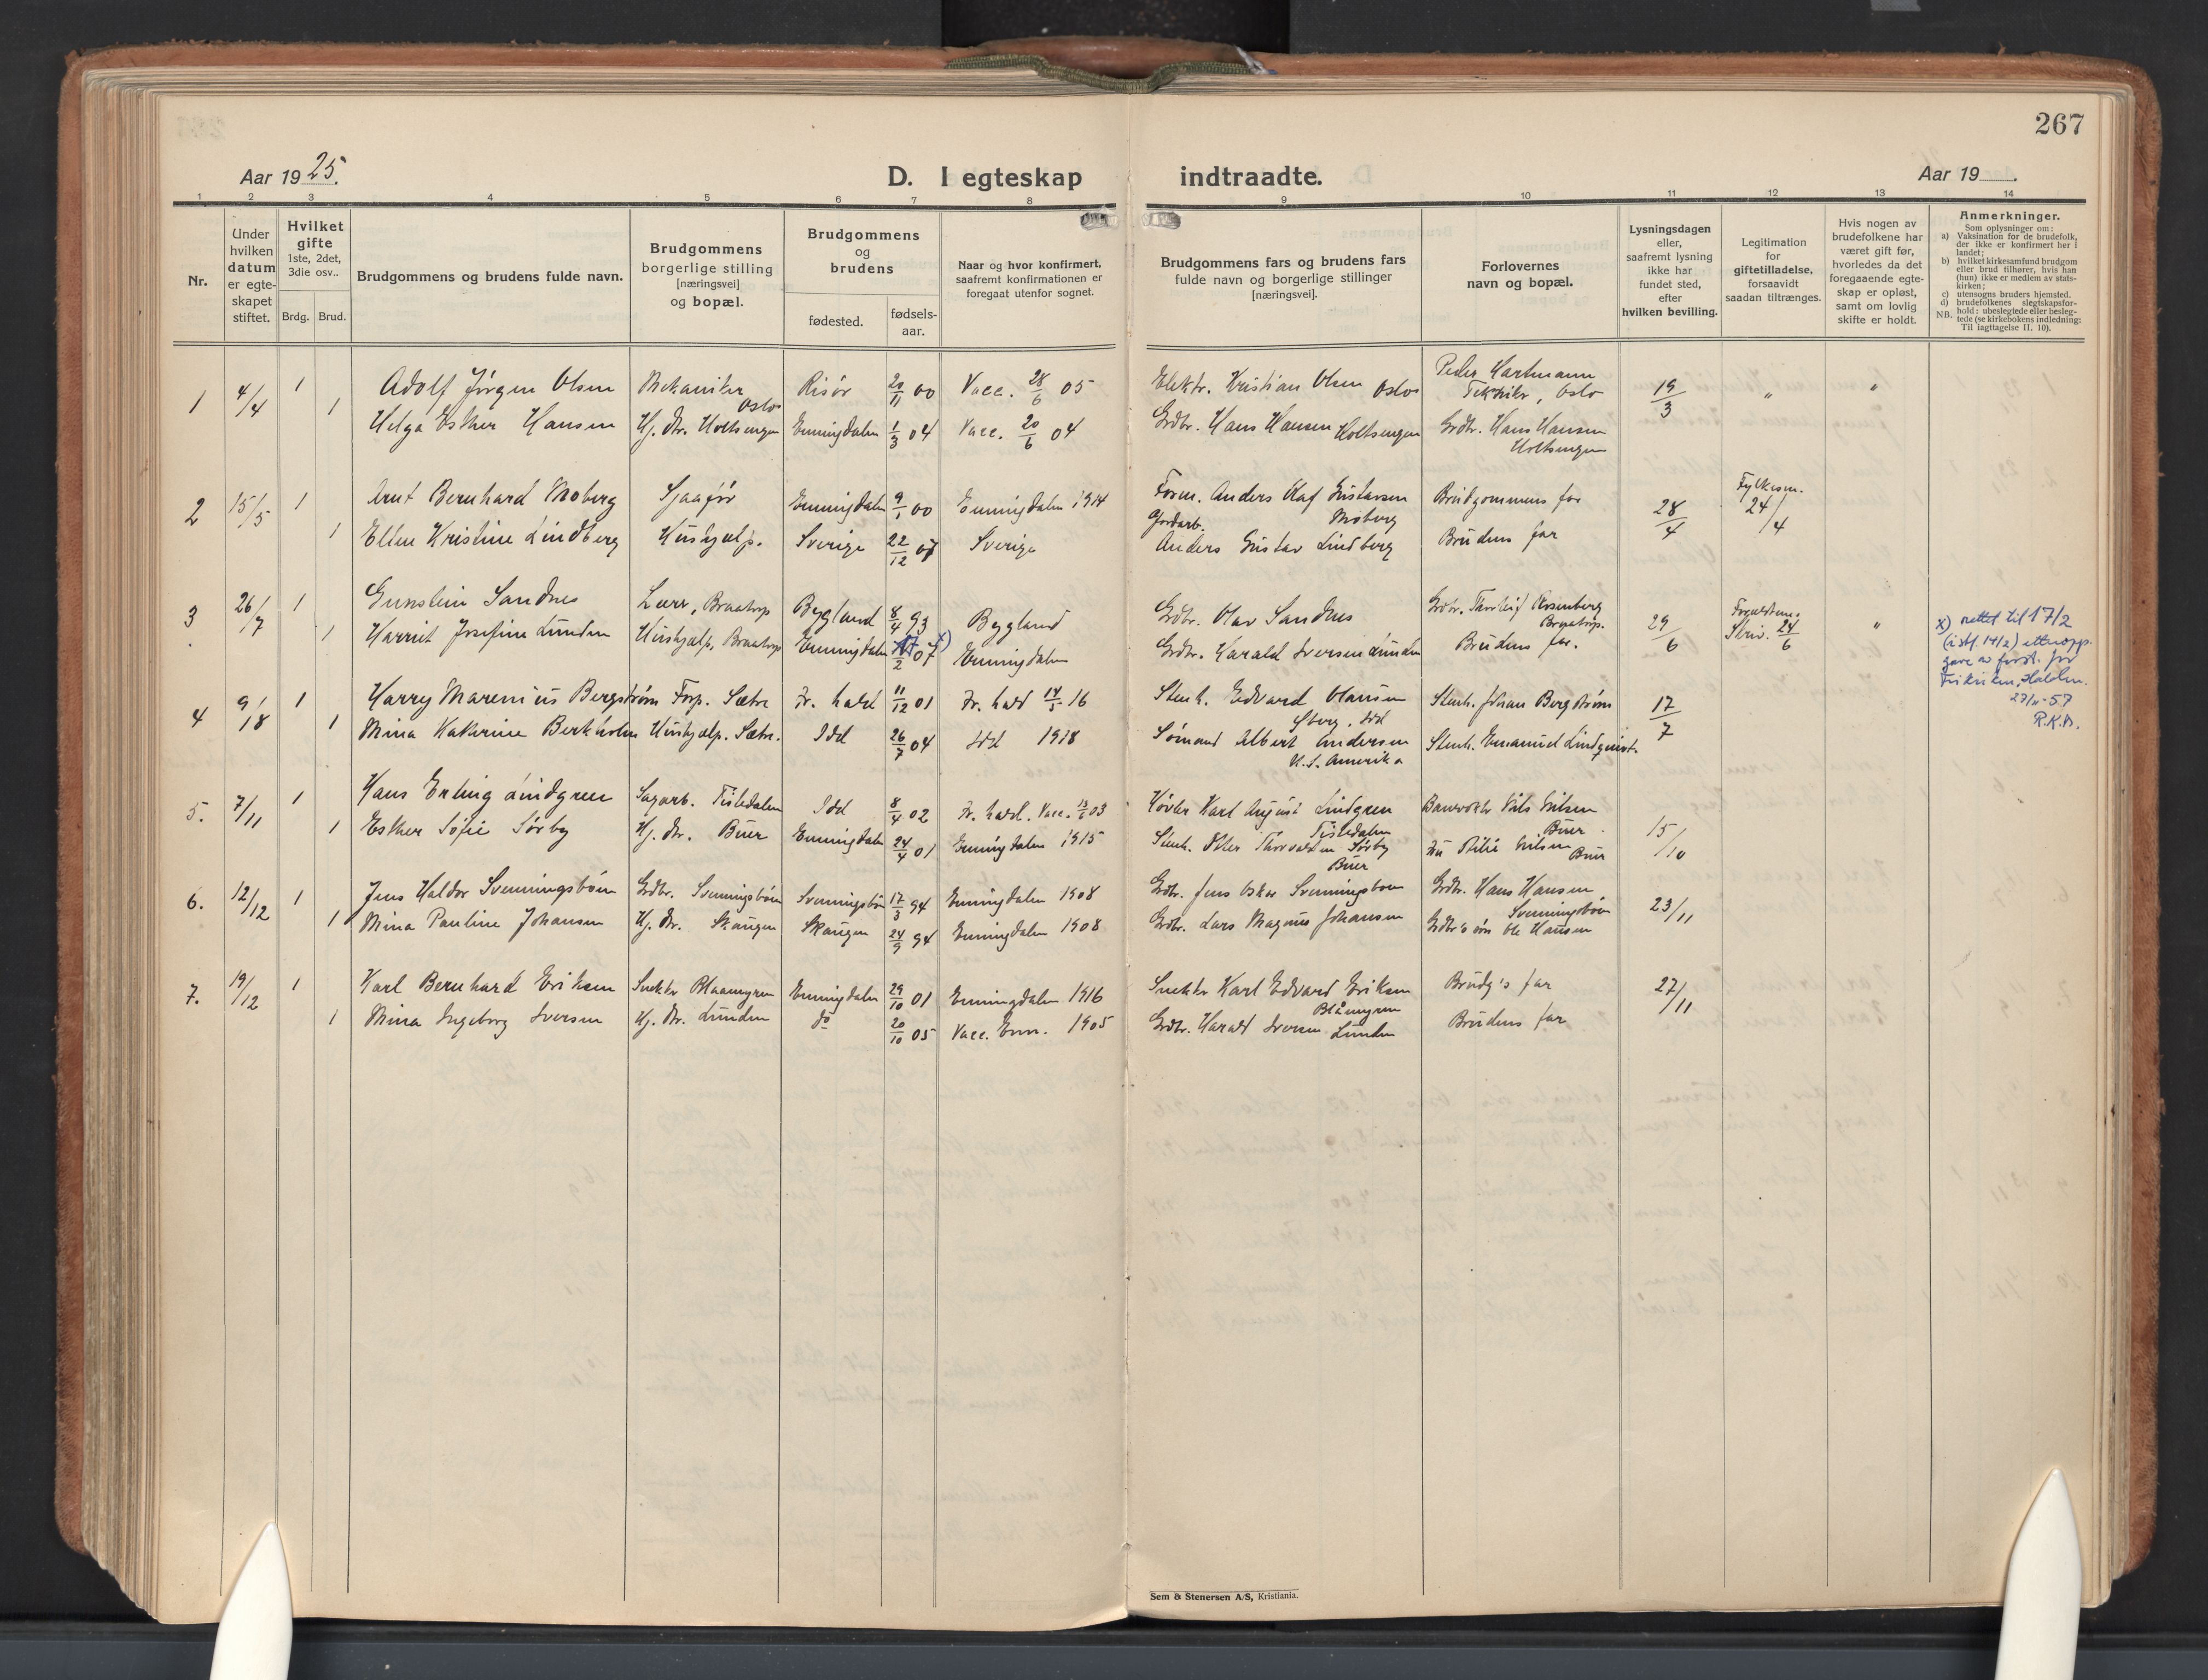 267
Aar 1925.
D. I egteskap indtraadte.
Aar 19
1 2 3 4 5 6 7 8 9 10 11 12 13 14
Nr.
Under
hvilken
datum
er egte-
skapet
stiftet.
Hvilket
gifte
1ste, 2det,
3die osv..
Brdg. Brud.
Brudgommens og brudens fulde navn.
Brudgommens
borgerlige stilling
[næringsvei]
og bopæl.
Brudgommens
og
brudens
fødested.
fødsels-
aar.
Naar og hvor konfirmert,
saafremt konfirmationen er
foregaat utenfor sognet.
Brudgommens fars og brudens fars
fulde navn og borgerlige stillinger
[næringsvei].
Forlovernes
navn og bopæl.
Lysningsdagen
eller,
saafremt lysning
ikke har
fundet sted,
efter
hvilken bevilling.
Legitimation
for
giftetilladelse,
forsaavidt
saadan tiltrænges.
Hvis nogen av
brudefolkene har
været gift før,
hvorledes da det
foregaaende egte-
skap er opløst,
samt om lovlig
skifte er holdt.
Anmerkninger.
Som oplysninger om:
a) Vaksination for de brudefolk,
der ikke er konfirmert her i
landet;
b) hvilket kirkesamfund brudgom
eller brud tilhører, hvis han
(hun) ikke er medlem av stats-
kirken;
c) utensogns bruders hjemsted.
d) brudefolkenes slegtskapsfor-
hold: ubeslegtede eller besleg-
NB. tede (se kirkebokens indledning:
Til iagttagelse II. 10).
1 4/4 1 Adolf Jörgen Olsen Mekaniker Oslo Risör 20/11 00 Vacc. 28/6 05 Elektr. Kristian Olsen Oslo Peder Hartmann Tekniker, Oslo 19/3 " "
1 Helga Esther Hansen Hj. Dr. Holtsengen Enningdalen 1/3 04 Vacc. 20/6 04 Grdbr. Hans Hansen Holtsengen Grdbr. Hans Hansen Holtsengen
2 15/5 1 Arnt Bernhard Moberg Sjaaför Enningdalen 9/1 00 Enningdalen 1914 Form. Anders Olaf Gustavsen Moberg Brudgommens far 28/4 Fylkesm. 24/4
1 Ellen Kristine Lindberg Hushjælp. Sverige 22/12 07 Sverige Gardarb. Anders Gustav Lindberg Brudens far
3 26/7 1 Gunstein Sandnes Lærer, Braatorp Bygland 8/4 93 Bygland Grdbr. Olav Sandnes Grdbr. Thorleif Rosenberg Braatorp. 29/6 Skriv. 24/6 "
1 Harriet Josefine Lunden Hushjælp, Braatorp Enningdalen 17/2 07 x) Enningdalen Grdbr. Harald Iversen Lunden Brudens far.
x) rettet til 17/2
(istf. 14/2) etter opp-
gave av forst. for
Frikirken, Halden.
27/11-57
R.K.A.
4 9/18 1 Harry Marenius Bergström Forp. Sætre Fr. hald 11/12 01 Fr. hald 14/5 16 Stenh. Edvard Olausen Sberg. Idd Stenh. Johan Bergström 17/7
1 Mina Katrine Berkholm Hushjælp. Sætre. Idd 26/7 04 Idd 1918 Sömand Albert Andersen U.S. Amerika Stenh. Emanuel Lindquist.
5. 7/11 1 Hans Erling Lindgren Sagarb. Tistedalen Idd 8/4 02 Fr. hald. Vacc. 13/6 03 Hövler Karl August Lindgren Tistedalen Banevokter Nils Nilsen Buer 15/10
1 Esther Sofie Sörby Hj. Dr. Buer Enningdalen 24/4 01 Enningdalen 1915 Stenh. Peter Thorvaldsen Sörby Buer Fru Otilie Nilsen Buer
6. 12/12 1 Jens Haldor Svenningsböen Grdbr. Svenningsböen Svenningsböen 17/3 94 Enningdalen 1908 Grdbr. Jens Oskar Svenningsböen Grdbr. Hans Hansen Svenningsböen 23/11
1 Mina Pauline Johansen Hj. Dr. Skaugen Skaugen 24/9 94 Enningdalen 1908 Grdbr. Lars Magnus Johansen Grdbr's sön Ole Hansen
7. 19/12 1 Karl Bernhard Eriksen Snekker Blaamyren Enningdalen 29/10 01 Enningdalen 1916 Snekker Karl Edvard Eriksen Blåmyren Brudg's far 27/11
1 Mina Ingeborg Iversen Hj. Dr. Lunden do 20/10 05 Vacc. Enn. 1905 Grdbr. Harald Iversen Lunden Brudens far
Sem & Stenersen A/S, Kristiania.